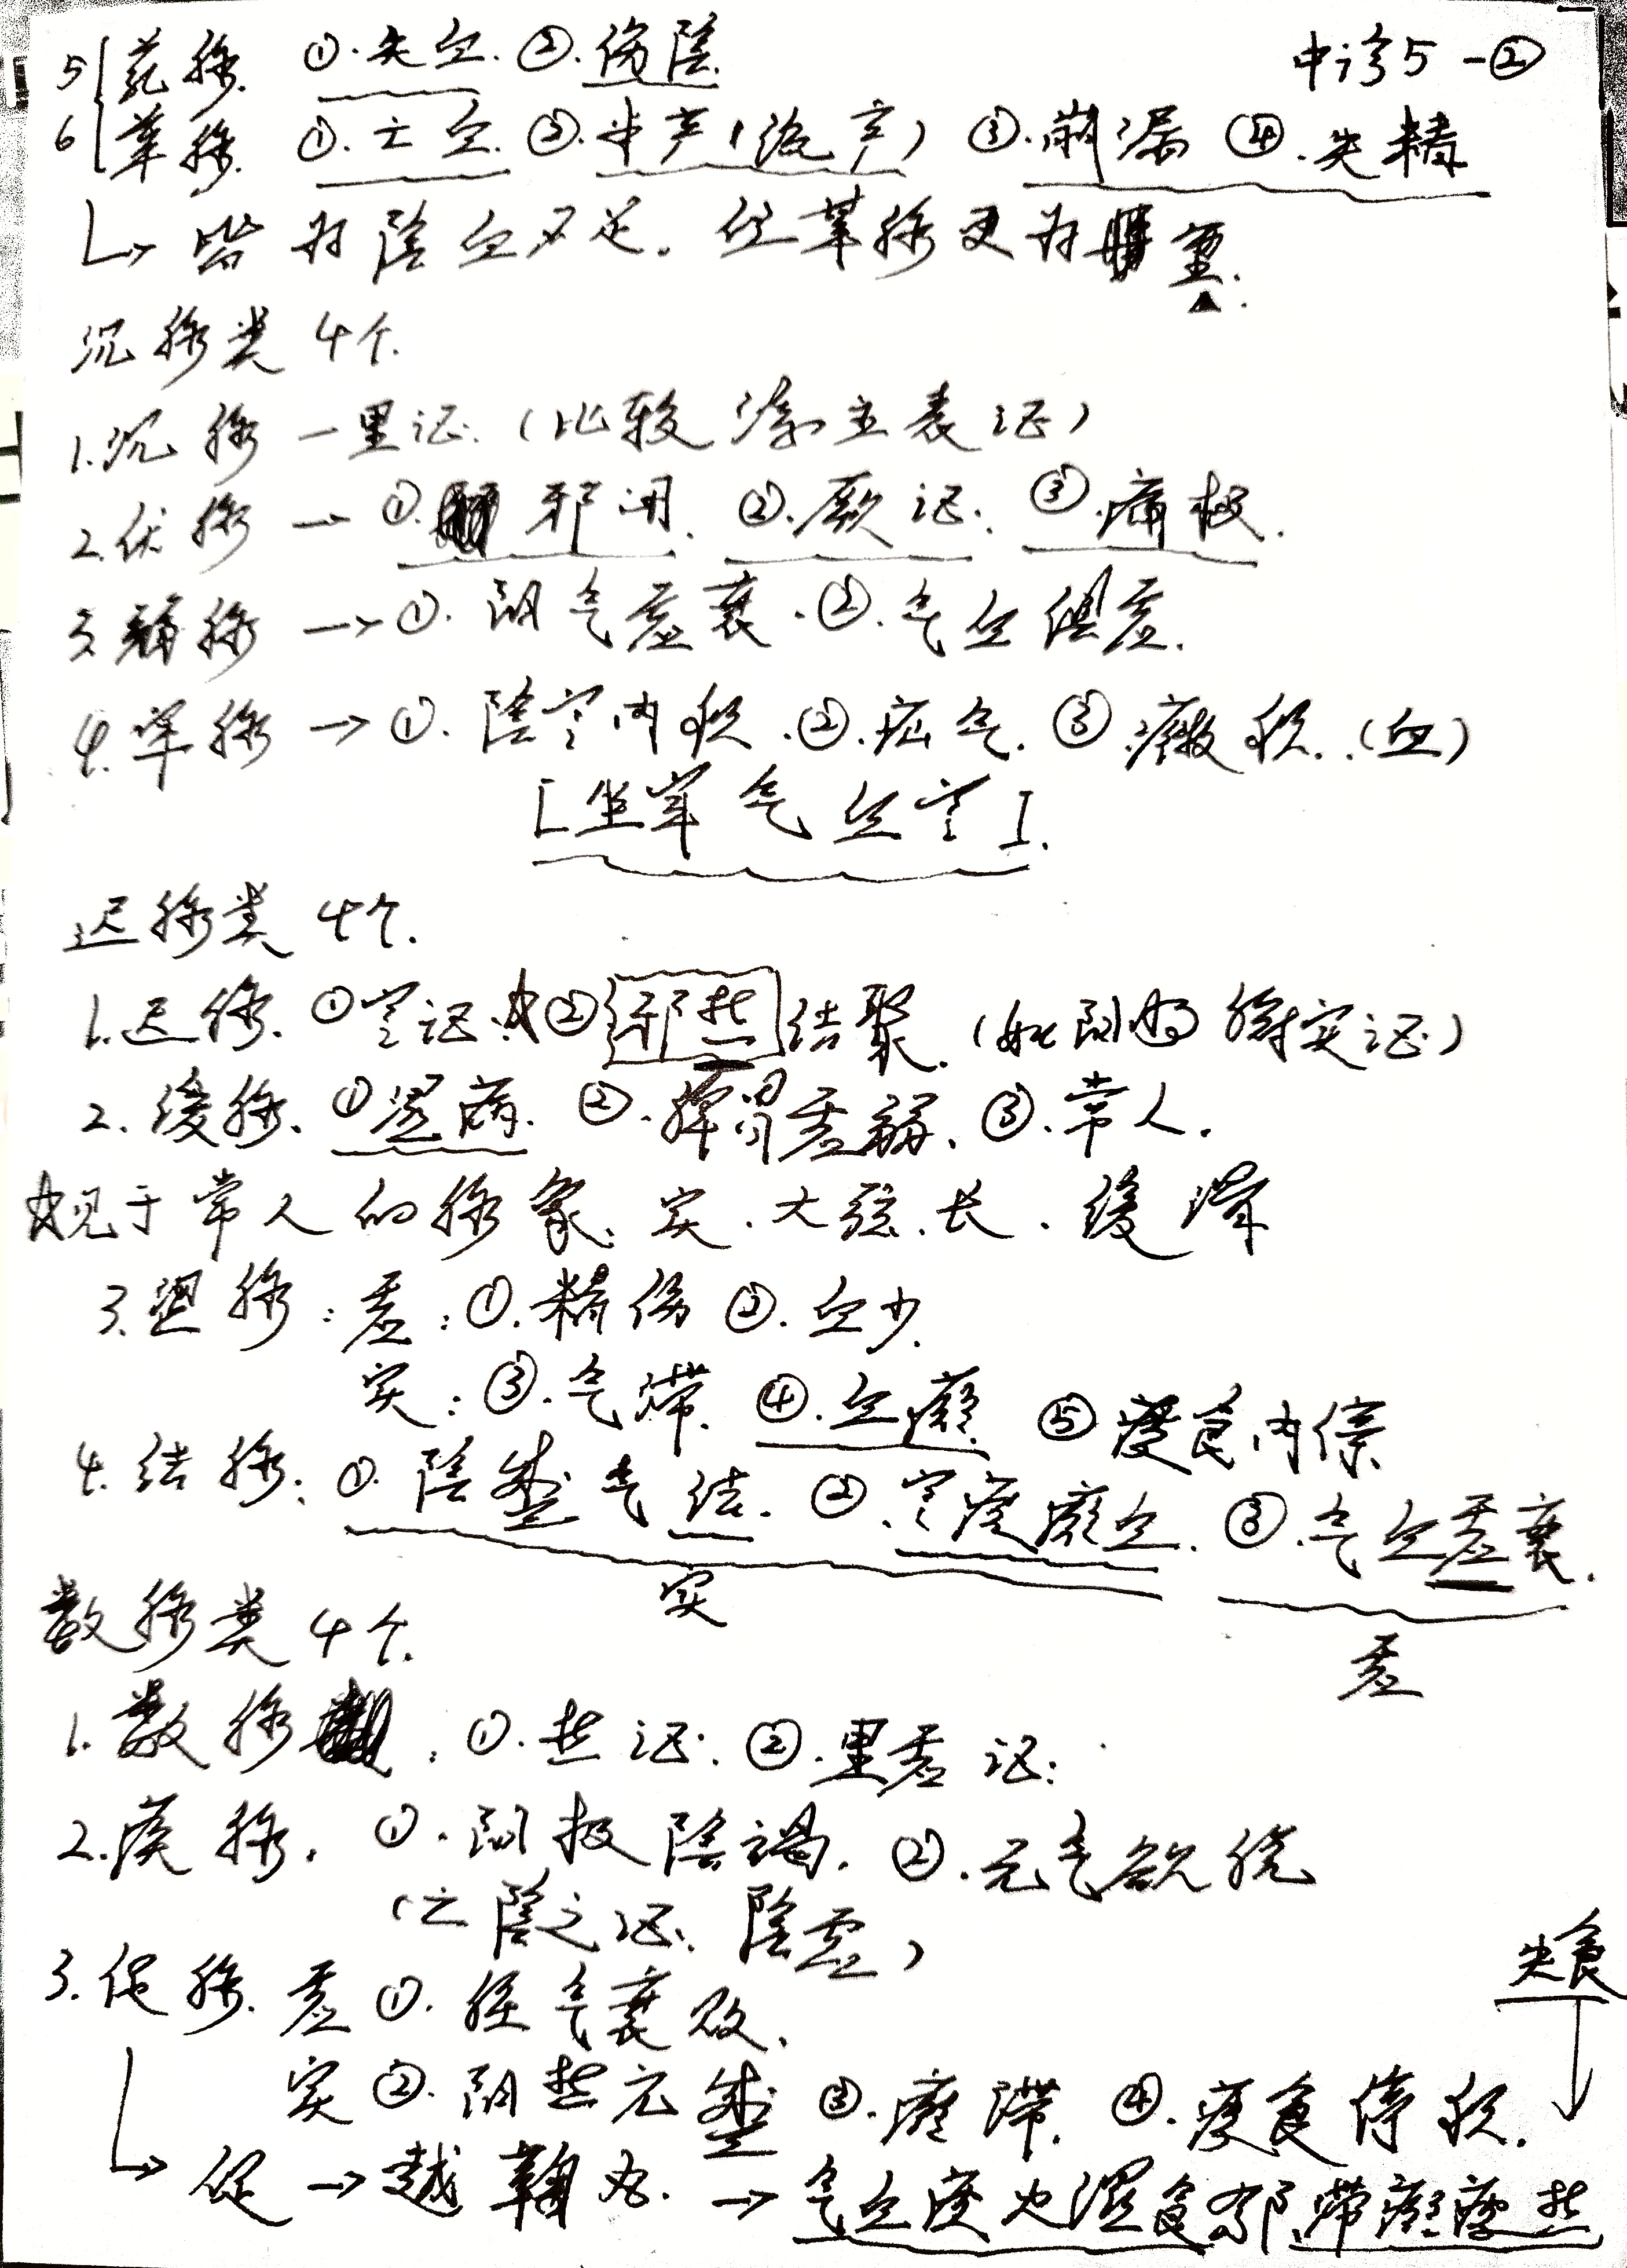 中诊5-②
5 芤脉. ①.失血. ②.伤陰.
6 革脉. ①.亡血. ②.半产(流产) ③.崩漏 ④.失精
↳ 皆为陰血不足. 但革脉更为重.
沉脉类 4个.
1.沉脉-里证.(比较浮主表证)
2.伏脉→①.邪闭. ②.厥证. ③.痛极.
3.弱脉→①.阳气虚衰.②.气血俱虚.
4.牢脉→①.陰寒内积.②.疝气.③.癥积.(血)
[坐牢气血寒].
迟脉类 4个.
1.迟脉. ①寒证.☆②邪热结聚.(如阳明腑实证)
2.缓脉. ①湿病. ②.脾胃虚弱. ③.常人.
☆见于常人的脉象:实.大弦.长.缓滑
3.涩脉:虚:①.精伤 ②.血少.
实:③.气滞. ④.血瘀. ⑤痰食内停.
4.结脉:①.陰盛气结. ②.寒痰瘀血. ③.气血虚衰.
实
虚
数脉类 4个.
1.数脉:①.热证. ②.里虚证:
2.疾脉. ①.阳极陰竭. ②.元气欲脱
(亡陰之证.陰虚)
3.促脉. 虚①.脏气衰败.
实②.阳热亢盛 ③.瘀滞. ④.痰食停积.
夹食
↓
↳ 促→越鞠丸.→气血痰火湿食郁.滞瘀痰热